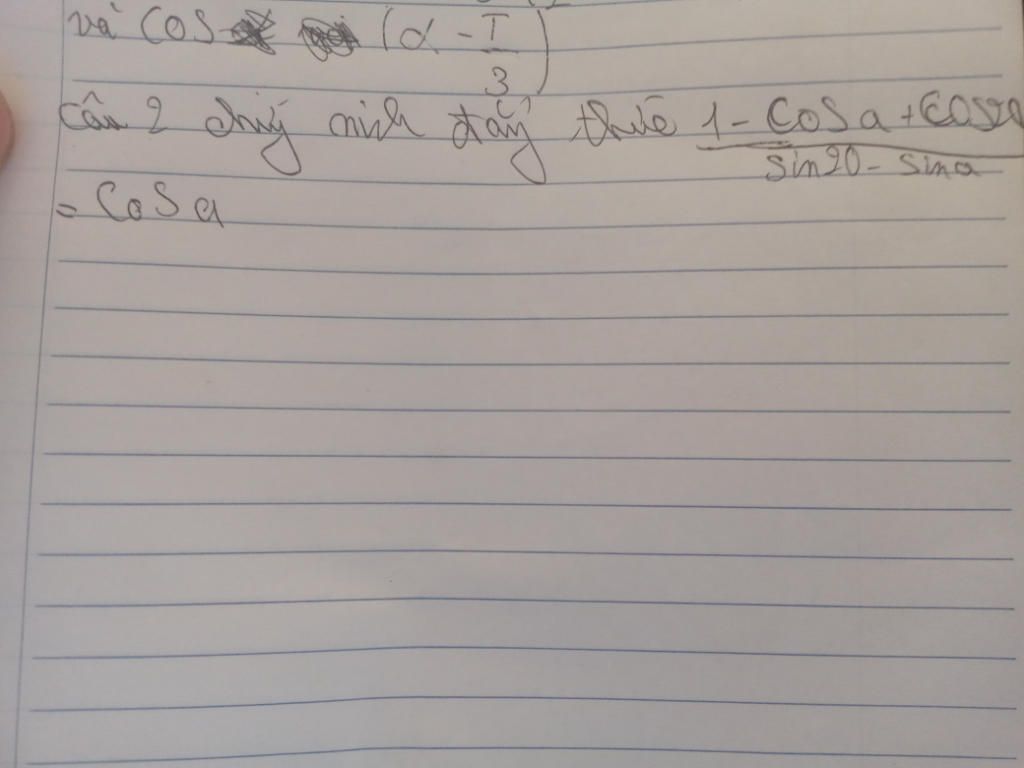 và cos (α - π/3)
Câu 2 chứng minh đẳng thức 1 - cos a + cos2a / sin2a - sin a
= cos a